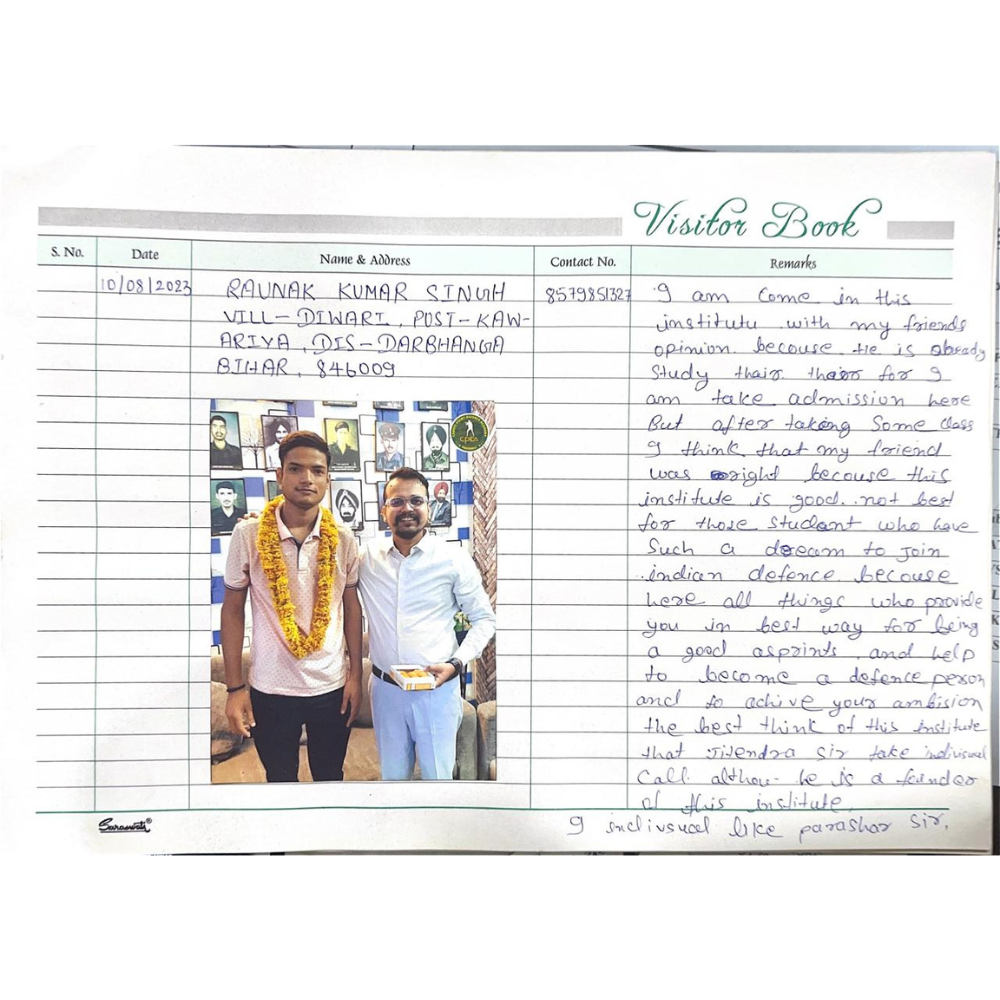 Visitor Book
S. No.
Date
Name & Address
Contact No.
Remarks
10/08/2023
RAUNAK KUMAR SINGH
VILL-DIWARI, POST-KAW-
ARIYA, DIS-DARBHANGA
BIHAR, 846009
8579851327
I am come in this
institute with my friends
opinion. becouse. He is abready
Study thair. thaor for I
am take admission here
But after taking Some class
I think that my friend
was right becouse this
institute is good. not best
for those student who have
Such a dream to Join
indian defence becouse
here all things who provide
you in best way for being
a good asprints, and help
to become a defence person
and to achive your ambision
the best think of this institute
that Jitendra Sir take indivisual
Call. althou- he is a founder
of this institute.
I indivsual like parashar Sir.
Saraswati®